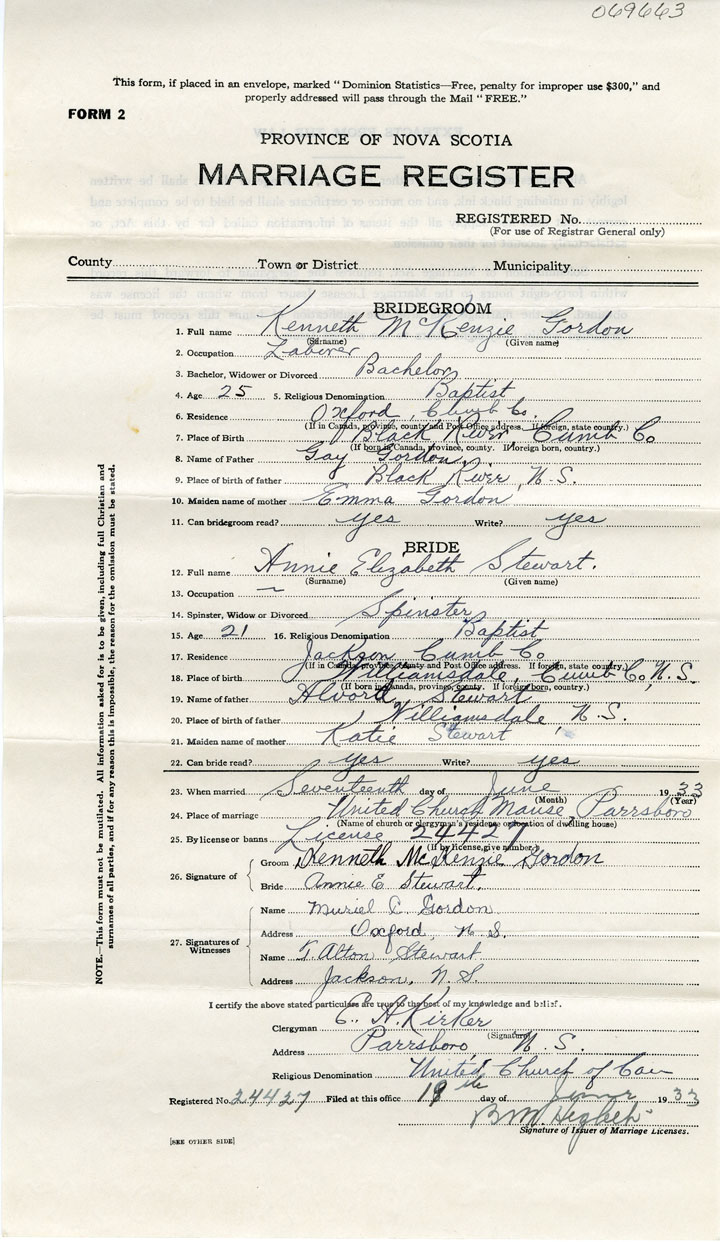 069663
This form, if placed in an envelope, marked "Dominion Statistics—Free, penalty for improper use $300," and
properly addressed will pass through the Mail "FREE."
FORM 2
PROVINCE OF NOVA SCOTIA
MARRIAGE REGISTER
REGISTERED No.
(For use of Registrar General only)
County Town or District Municipality
BRIDEGROOM
1. Full name Kenneth McKenzie Gordon
(Surname) (Given name)
2. Occupation Laborer
3. Bachelor, Widower or Divorced Bachelor
4. Age 25 5. Religious Denomination Baptist
6. Residence Oxford, Cumb Co.
(If in Canada, province, county and Post Office address. If foreign, state country.)
7. Place of Birth Black River, Cumb Co
(If born in Canada, province, county. If foreign born, country.)
8. Name of Father Guy Gordon
9. Place of birth of father Black River, N.S.
10. Maiden name of mother Emma Gordon
11. Can bridegroom read? yes Write? yes
BRIDE
12. Full name Annie Elizabeth Stewart.
(Surname) (Given name)
13. Occupation —
14. Spinster, Widow or Divorced Spinster
15. Age 21 16. Religious Denomination Baptist
17. Residence Jackson Cumb Co
(If in Canada, province, county and Post Office address. If foreign, state country.)
18. Place of birth Williamsdale, Cumb Co, N.S.
(If born in Canada, province, county. If foreign born, country.)
19. Name of father Alvord Stewart
20. Place of birth of father Williamsdale, N.S.
21. Maiden name of mother Katie Stewart
22. Can bride read? yes Write? yes
23. When married Seventeenth day of June 1933
(Month) (Year)
24. Place of marriage United Church Manse, Parrsboro
(Name of church or clergyman's residence or location of dwelling house)
25. By license or banns License 24427
(If by license, give number)
26. Signature of
Groom Kenneth McKenzie Gordon
Bride Annie E Stewart.
27. Signatures of Witnesses
Name Muriel C. Gordon
Address Oxford, N.S.
Name T. Alton Stewart
Address Jackson, N.S.
I certify the above stated particulars are true to the best of my knowledge and belief.
Clergyman A. Kirker
(Signature)
Address Parrsboro, N.S.
Religious Denomination United Church of Can
Registered No. 24427 Filed at this office 19th day of June 1933
B.M.
Signature of Issuer of Marriage Licenses.
[SEE OTHER SIDE]
NOTE.—This form must not be mutilated. All information asked for is to be given, including full Christian and
surnames of all parties, and if for any reason this is impossible, the reason for the omission must be stated.